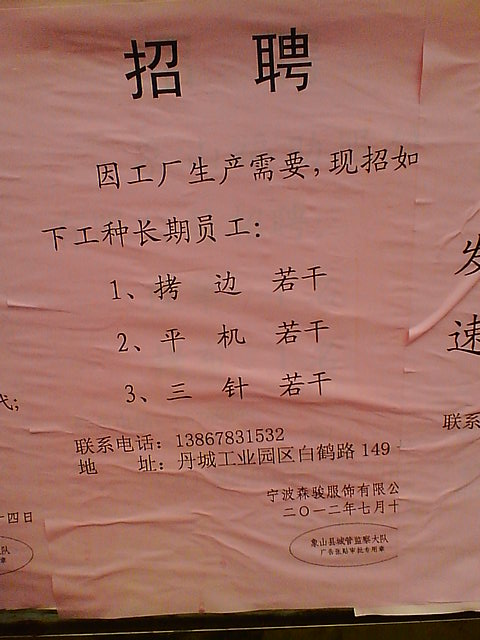 招 聘
因工厂生产需要,现招如
下工种长期员工:
1、拷 边 若干
2、平 机 若干
3、三 针 若干
联系电话: 13867831532
地 址: 丹城工业园区白鹤路 149
宁波森骏服饰有限公
二〇一二年七月十
象山县城管监察大队
广告张贴审批专用章
代;
十四日
队
章
发
速
联系